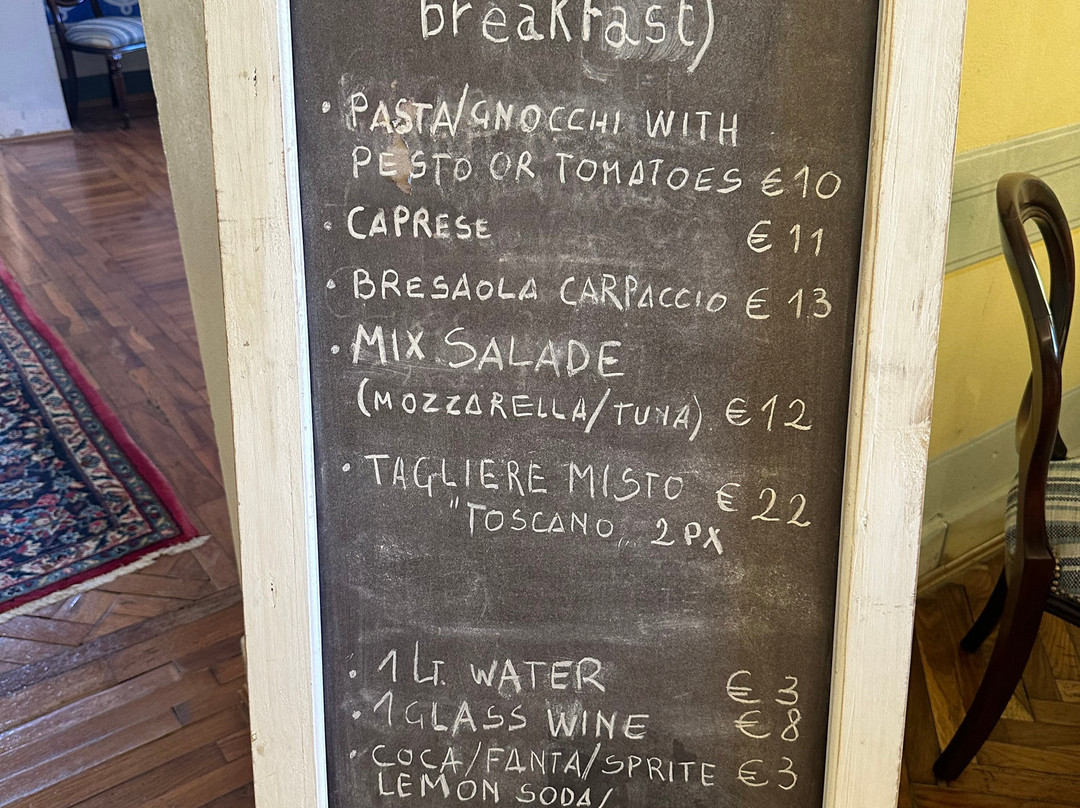 breakfast)
• PASTA/GNOCCHI WITH
PESTO OR TOMATOES €10
• CAPRESE €11
• BRESAOLA CARPACCIO €13
• MIX SALADE
(MOZZARELLA/TUNA) €12
• TAGLIERE MISTO €22
"TOSCANO„ 2PX
• 1 LT. WATER €3
• 1 GLASS WINE €8
• COCA/FANTA/SPRITE €3
LEMON SODA/